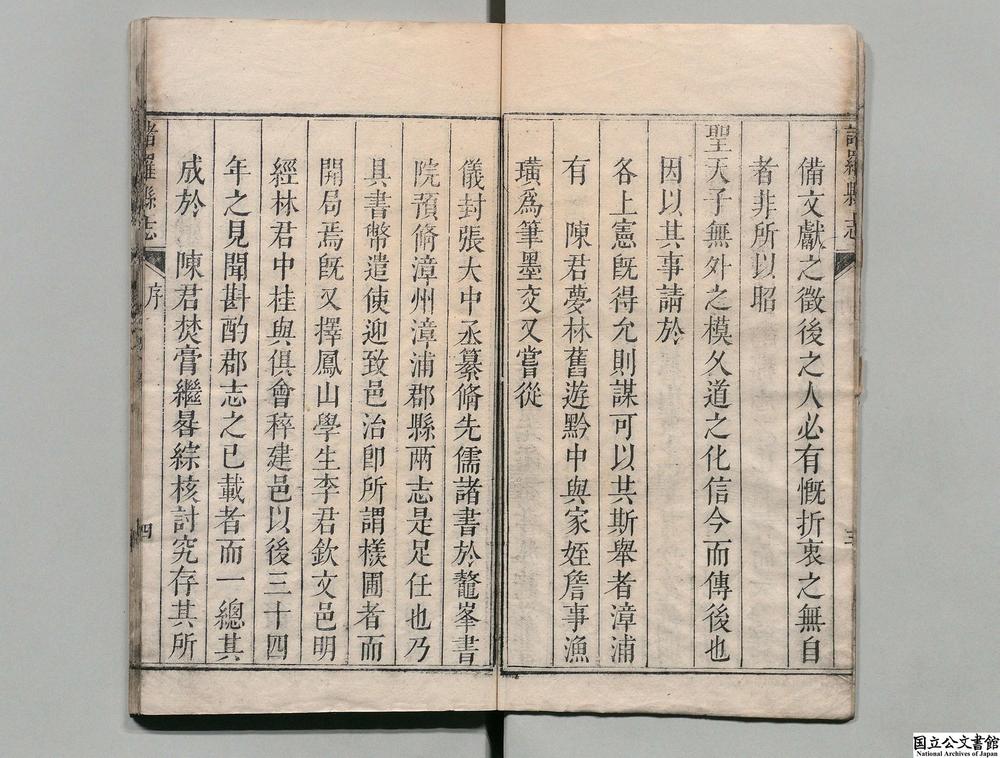 諸羅縣志
三
備文獻之徵後之人必有慨折衷之無自
者非所以昭
聖天子無外之模久道之化信今而傳後也
因以其事請於
各上憲旣得允則謀可以共斯舉者漳浦
有　陳君夢林舊遊黔中與家姪詹事漁
璜爲筆墨交又嘗從
儀封張大中丞纂脩先儒諸書於鼇峯書
院預脩漳州漳浦郡縣兩志是足任也乃
具書幣遣使迎致邑治卽所謂檨圃者而
開局焉旣又擇鳳山學生李君欽文邑明
經林君中桂與俱會稡建邑以後三十四
年之見聞斟酌郡志之已載者而一總其
成於　陳君焚膏繼晷綜核討究存其所
諸羅縣志
序
四
国立公文書館
National Archives of Japan